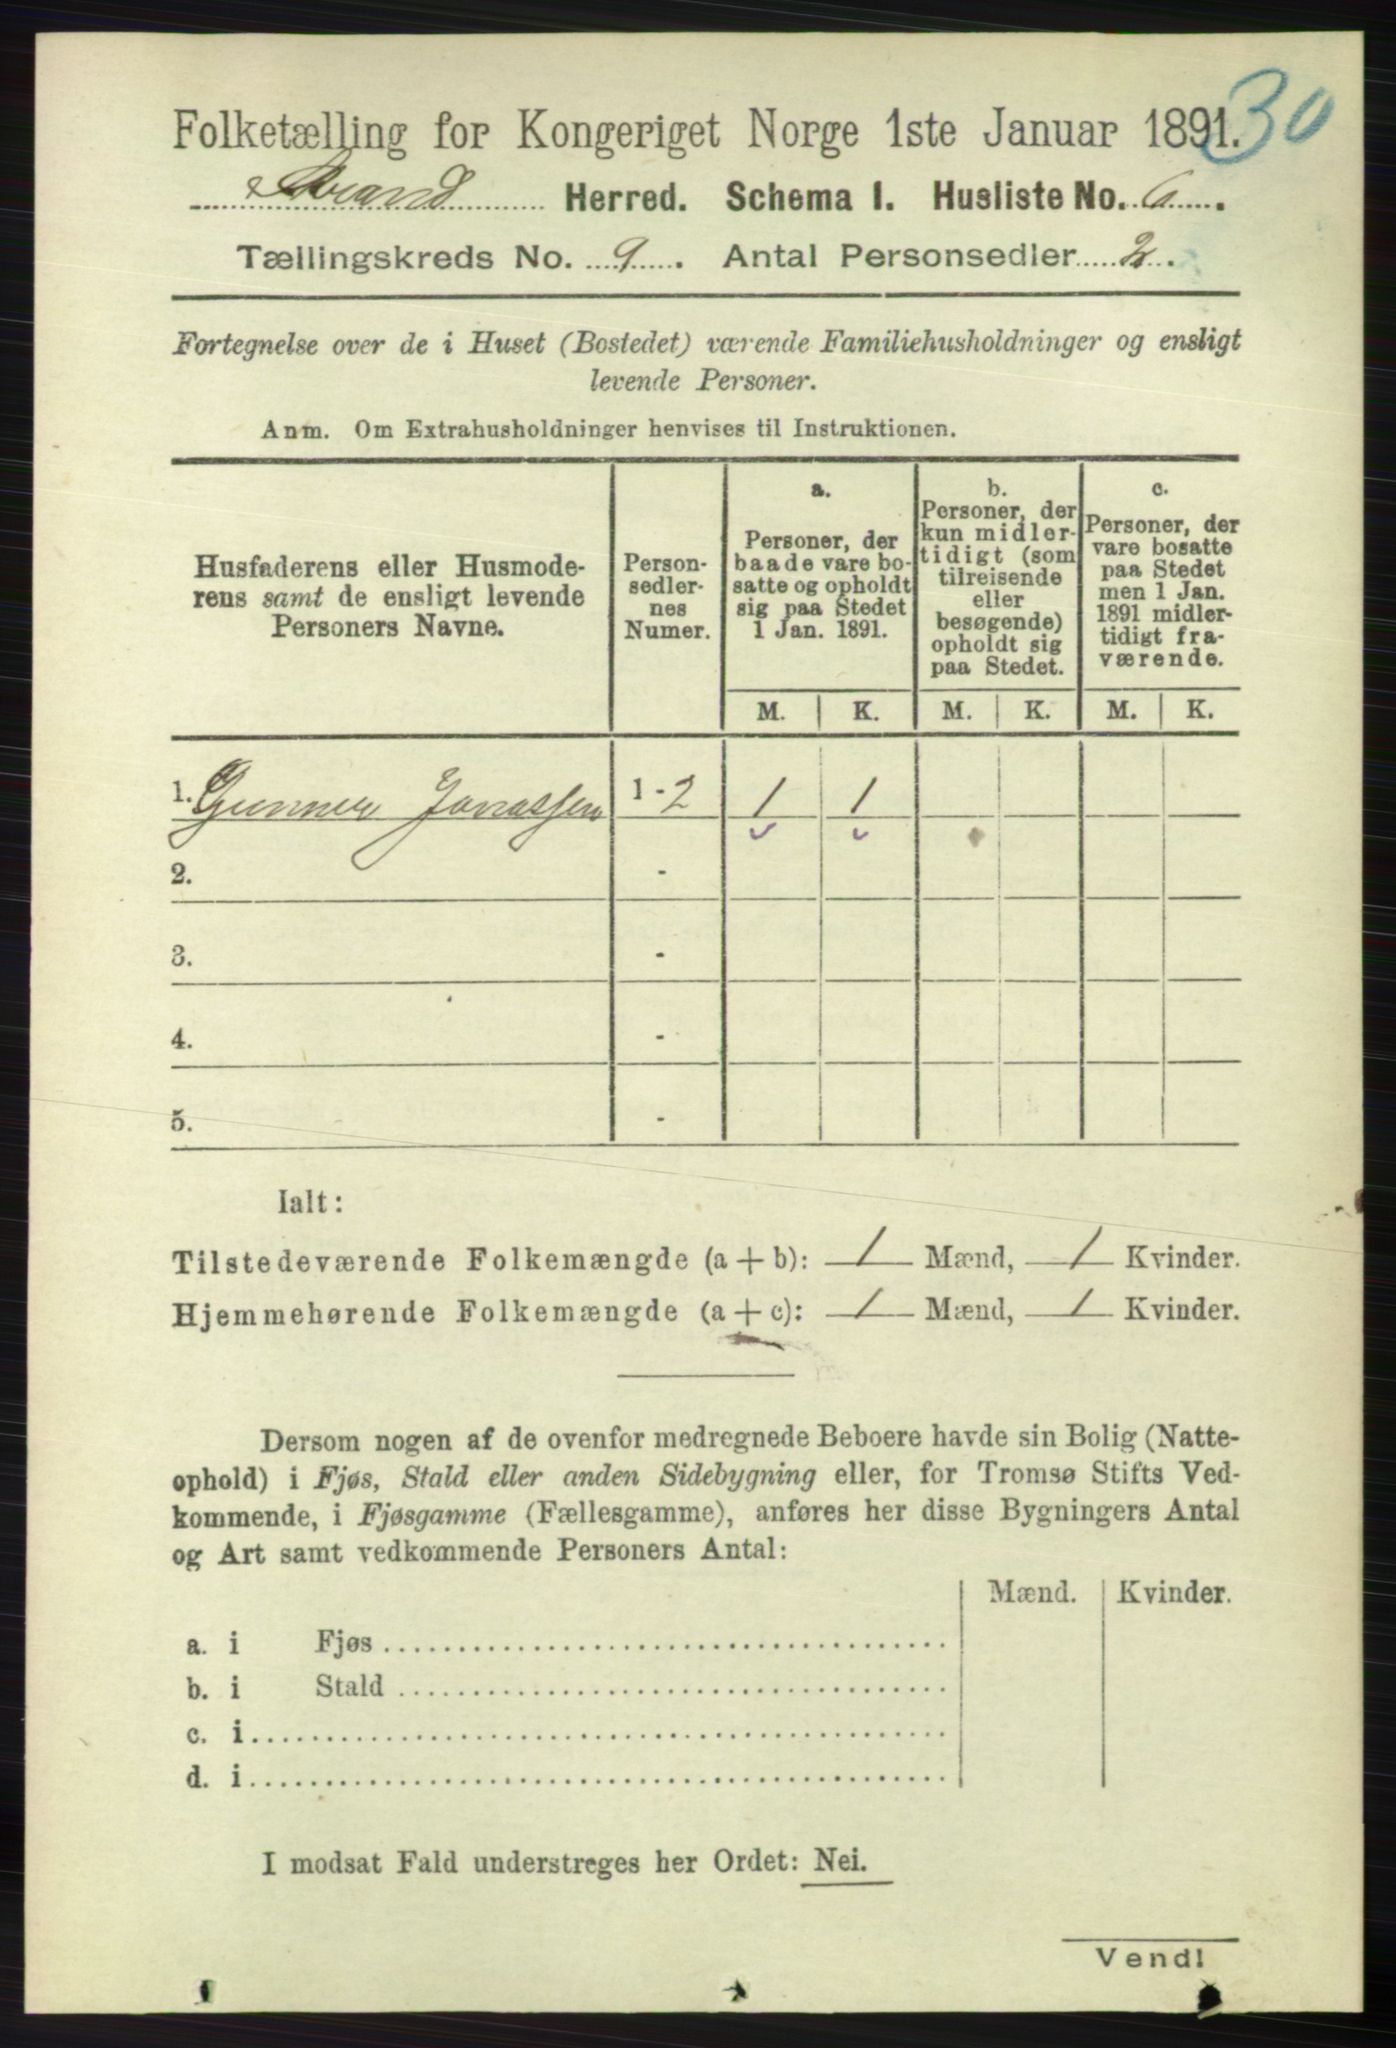 30
Folketælling for Kongeriget Norge 1ste Januar 1891.
Strand Herred. Schema 1. Husliste No. 6.
Tællingskreds No. 9. Antal Personsedler 2.
Fortegnelse over de i Huset (Bostedet) værende Familiehusholdninger og ensligt
levende Personer.
Anm. Om Extrahusholdninger henvises til Instruktionen.
Husfaderens eller Husmode-
rens samt de ensligt levende
Personers Navne.
Person-
sedler-
nes
Numer.
a.
Personer, der
baade vare bo-
satte og opholdt
sig paa Stedet
1 Jan. 1891.
b.
Personer, der
kun midler-
tidigt (som
tilreisende
eller
besøgende)
opholdt sig
paa Stedet.
c.
Personer, der
vare bosatte
paa Stedet
men 1 Jan.
1891 midler-
tidigt fra-
værende.
M. K. M. K. M. K.
1. Gunner Jonassen 1 - 2 1 1
2. -
3. -
4. -
5. -
Ialt:
Tilstedeværende Folkemængde (a + b): 1 Mænd, 1 Kvinder.
Hjemmehørende Folkemængde (a + c): 1 Mænd, 1 Kvinder.
Dersom nogen af de ovenfor medregnede Beboere havde sin Bolig (Natte-
ophold) i Fjøs, Stald eller anden Sidebygning eller, for Tromsø Stifts Ved-
kommende, i Fjøsgamme (Fællesgamme), anføres her disse Bygningers Antal
og Art samt vedkommende Personers Antal:
Mænd. Kvinder.
a. i Fjøs
b. i Stald
c. i
d. i
I modsat Fald understreges her Ordet: Nei.
Vend!